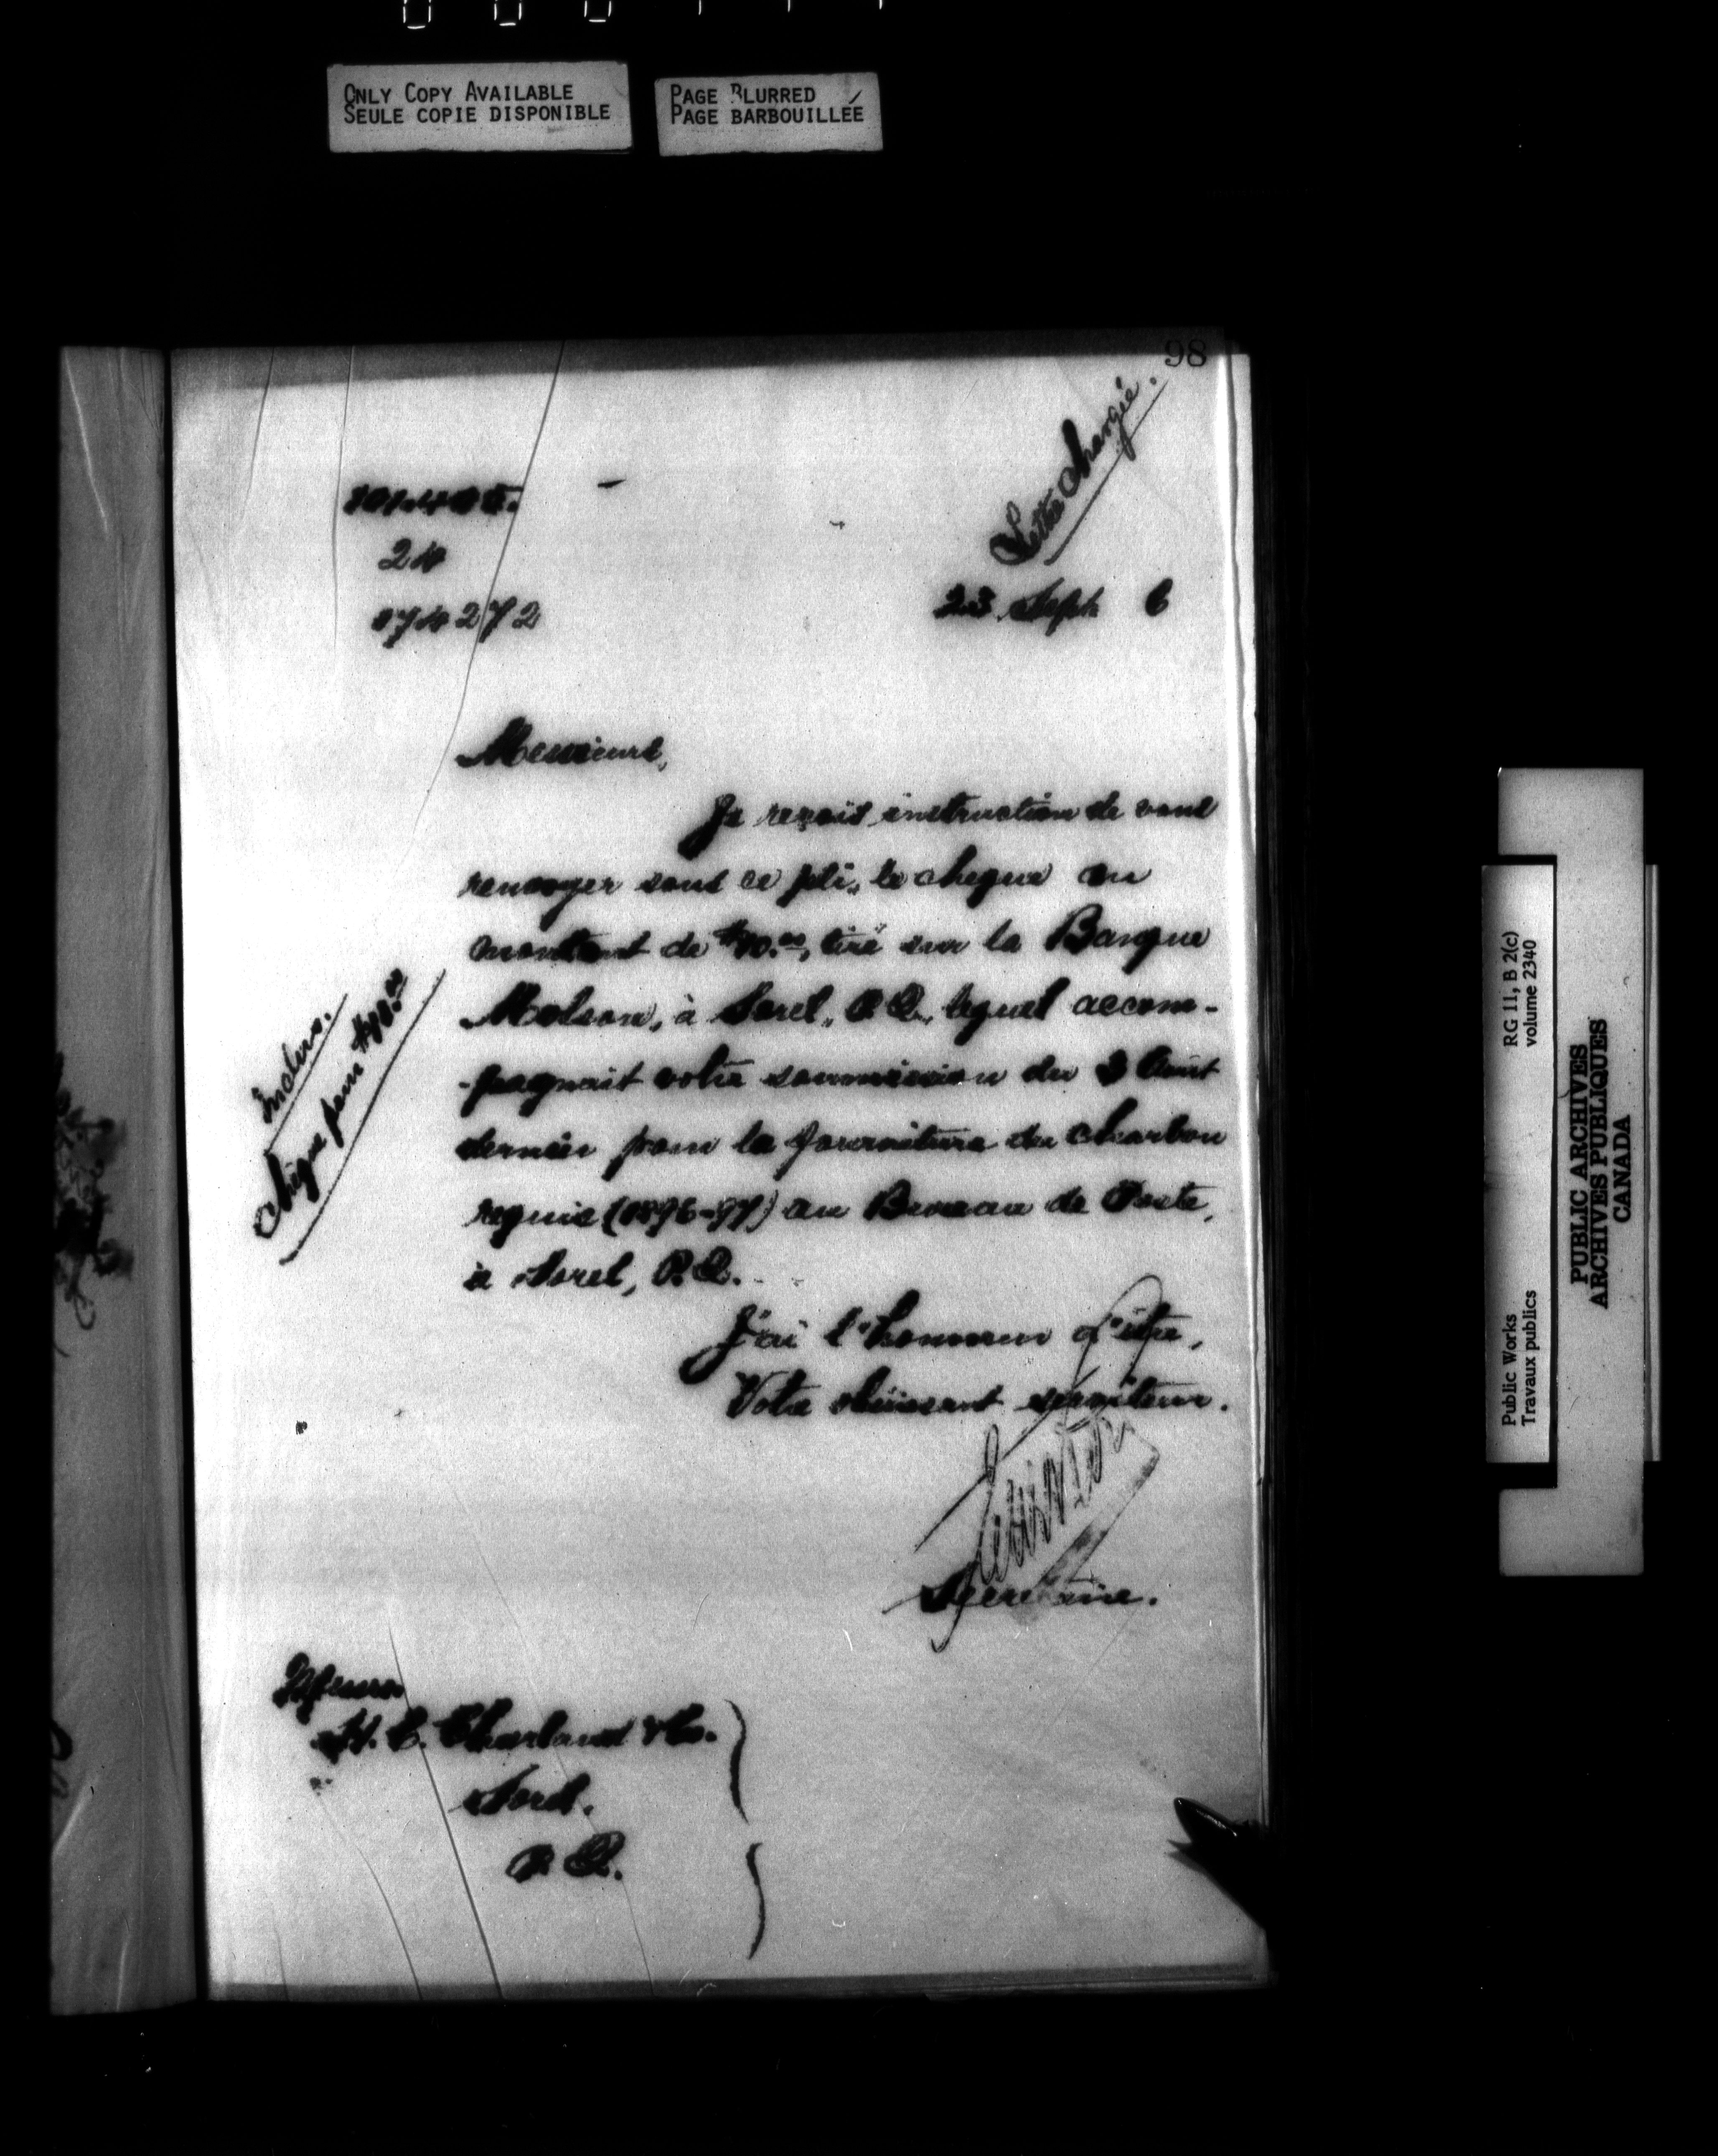 ONLY COPY AVAILABLE
SEULE COPIE DISPONIBLE
PAGE BLURRED
PAGE BARBOUILLÉE
98
Lettre chargée.
23 Sept. 6
Messieurs,
Je reçois instruction de vous
renvoyer sous ce pli, le chèque au
montant de tiré sur la Banque
Molson, à Sorel, P.Q., lequel accom-
-pagnait votre soumission du 3 Août
dernier pour la fourniture du charbon
requis (1896-97) au Bureau de Poste,
à Sorel, P.Q.
Inclus.
Chèque pour
J'ai l'honneur d'être,
Votre obéissant serviteur.
Secrétaire.
Messrs
H. C. Charland & Co.
Sorel.
P.Q.
Public Works
Travaux publics
RG 11, B 2(c)
volume 2340
PUBLIC ARCHIVES
ARCHIVES PUBLIQUES
CANADA